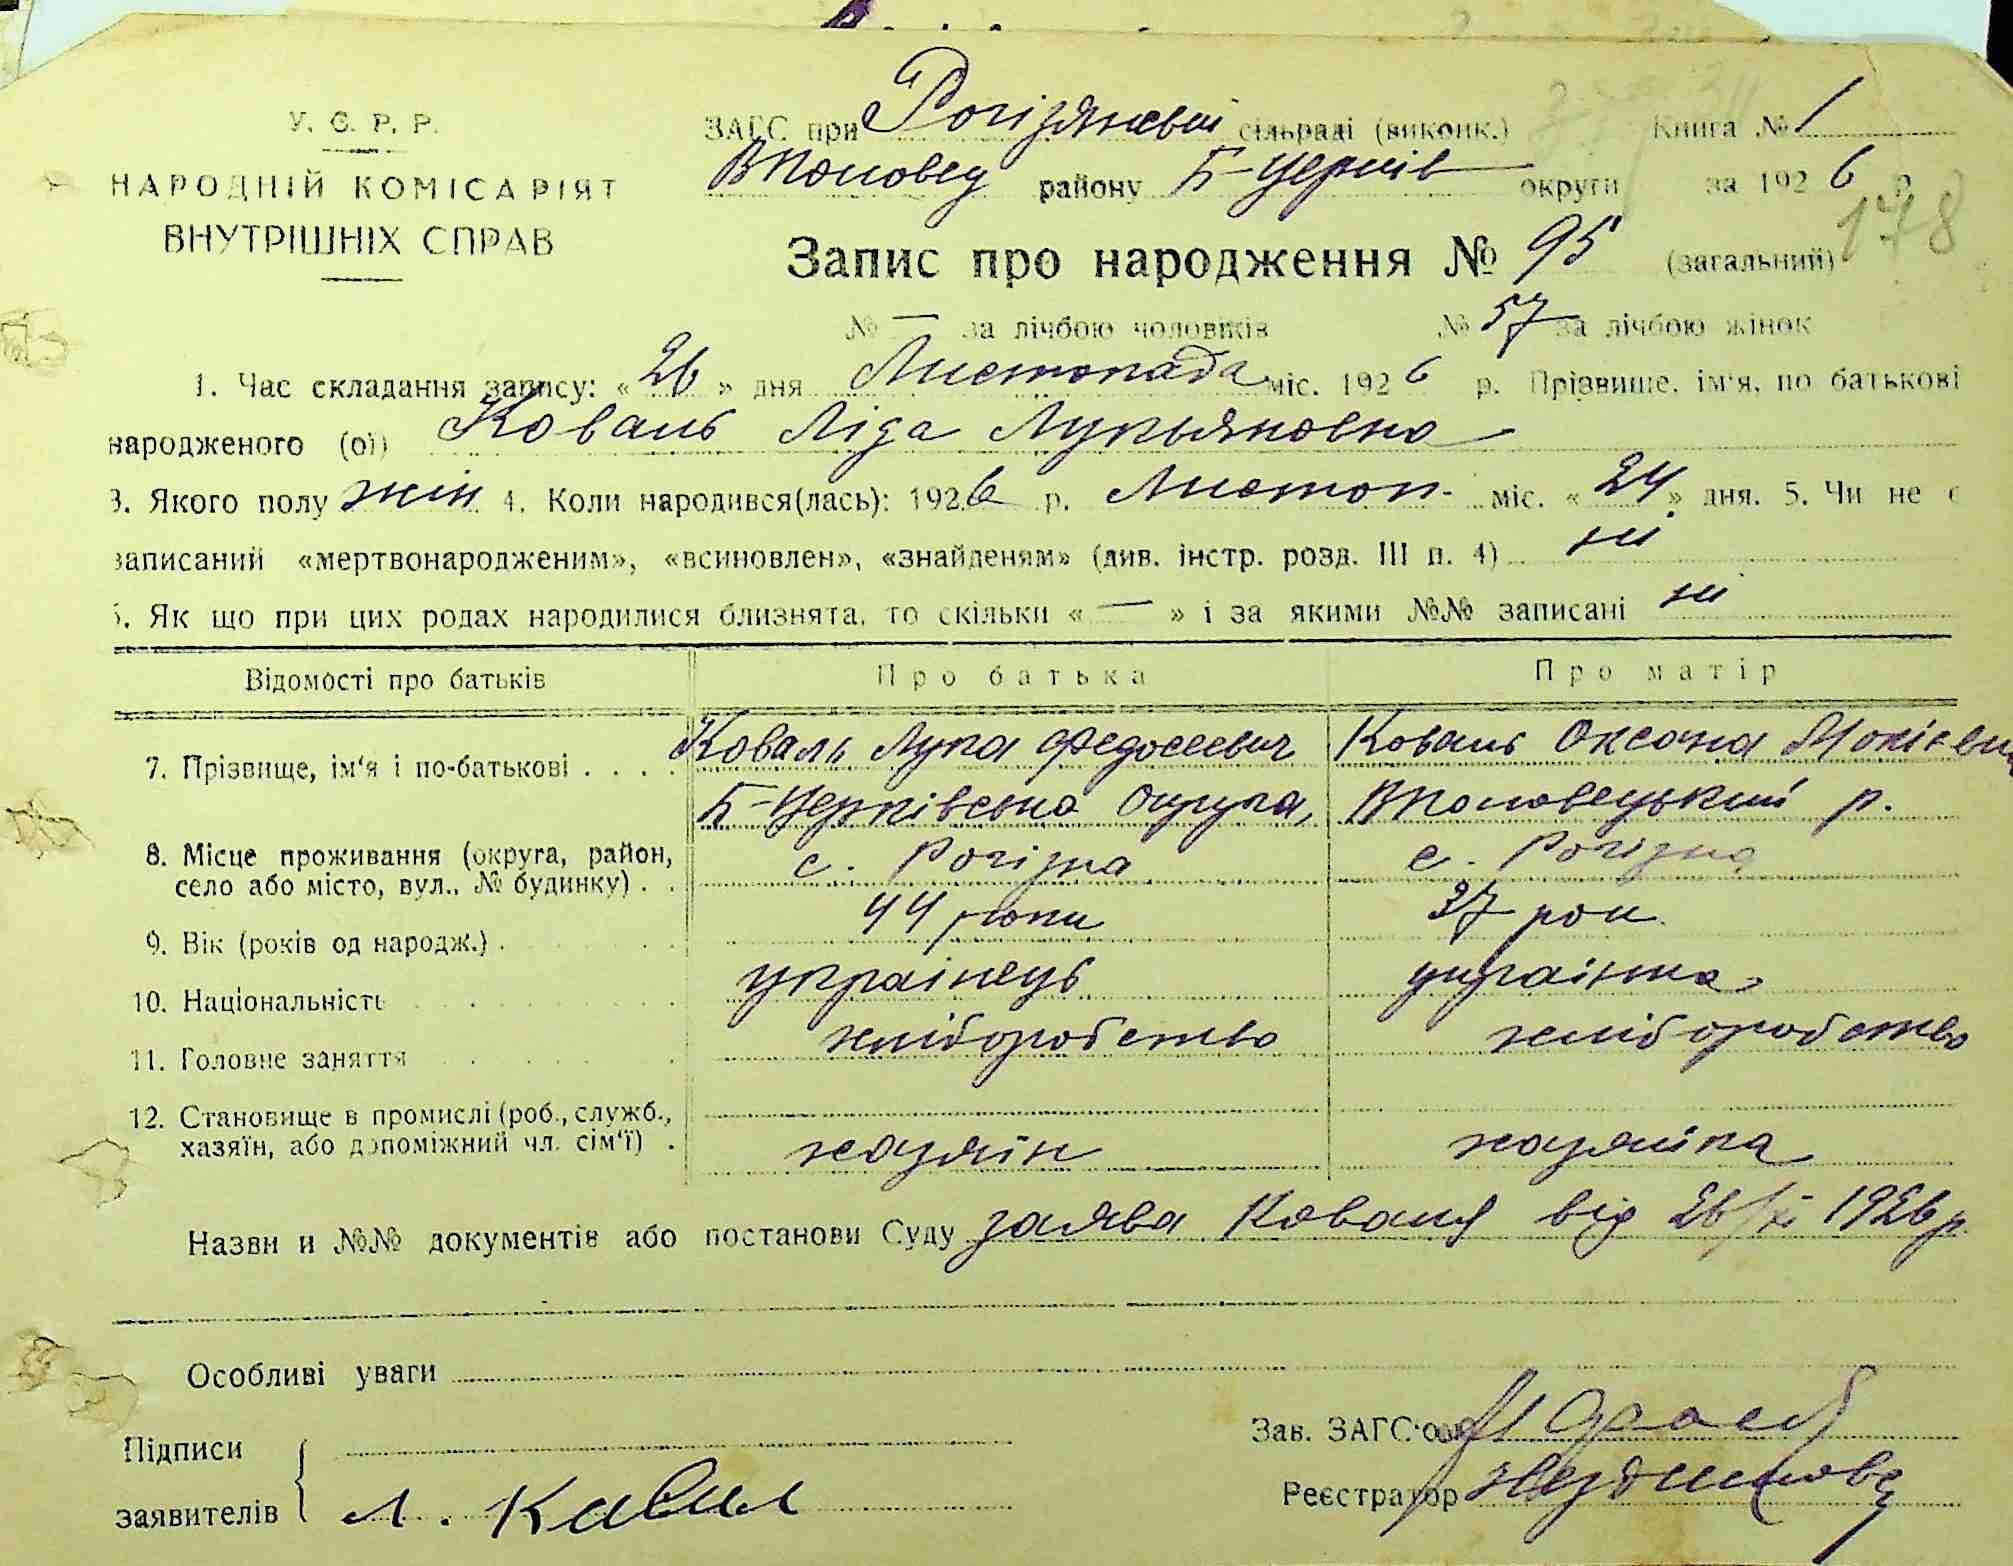 У. С. Р. Р.
НАРОДНІЙ КОМІСАРІЯТ
ВНУТРІШНІХ СПРАВ
ЗАГС при Рогізянській сільраді (виконк.) Книга № 1
ВПоловец району Б-Церків округи за 1926 р.
178
Запис про народження № 95 (загальний)
№ — за лічбою чоловіків № 57 за лічбою жінок
1. Час складання запису: «26» дня Листопада міс. 1926 р. Прізвище, ім'я, по батькові
народженого (ої) Коваль Ліда Лукьяновна
3. Якого полу жін 4. Коли народився(лась): 1926 р. Листоп. міс. «24» дня. 5. Чи не є
записаний «мертвонародженим», «всиновлен», «знайденям» (див. інстр. розд. III п. 4) ні
6. Як що при цих родах народилися близнята, то скільки «—» і за якими №№ записані ні
Відомості про батьків Про батька Про матір
7. Прізвище, ім'я і по-батькові . . . . Коваль Лука Федосеевич Коваль Оксана
Б-Церківська Округа, ВПоловецький р.
8. Місце проживання (округа, район,
село або місто, вул., № будинку) . . с. Рогізна с. Рогізна
9. Вік (років од народж.) . 44 роки 37 рок
10. Національність українець українка
11. Головне заняття хліборобство хліборобство
12. Становище в промислі (роб., служб.,
хазяїн, або допоміжний чл. сім'ї) . хазяїн хазяйка
Назви и №№ документів або постанови Суду заява Коваля від 26/XI 1926 р.
Особливі уваги
Підписи
заявителів Л. Кавал
Зав. ЗАГС'ом
Реєстратор